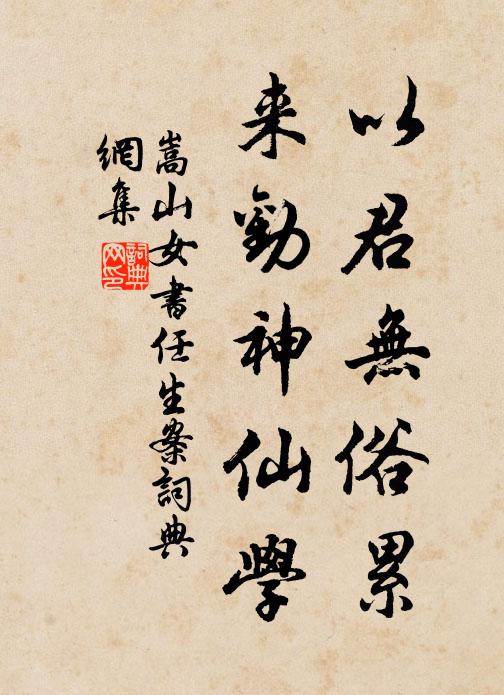 以君無俗累
来勸神仙學
嵩山女書任生案詞典
網集
詞典
网印